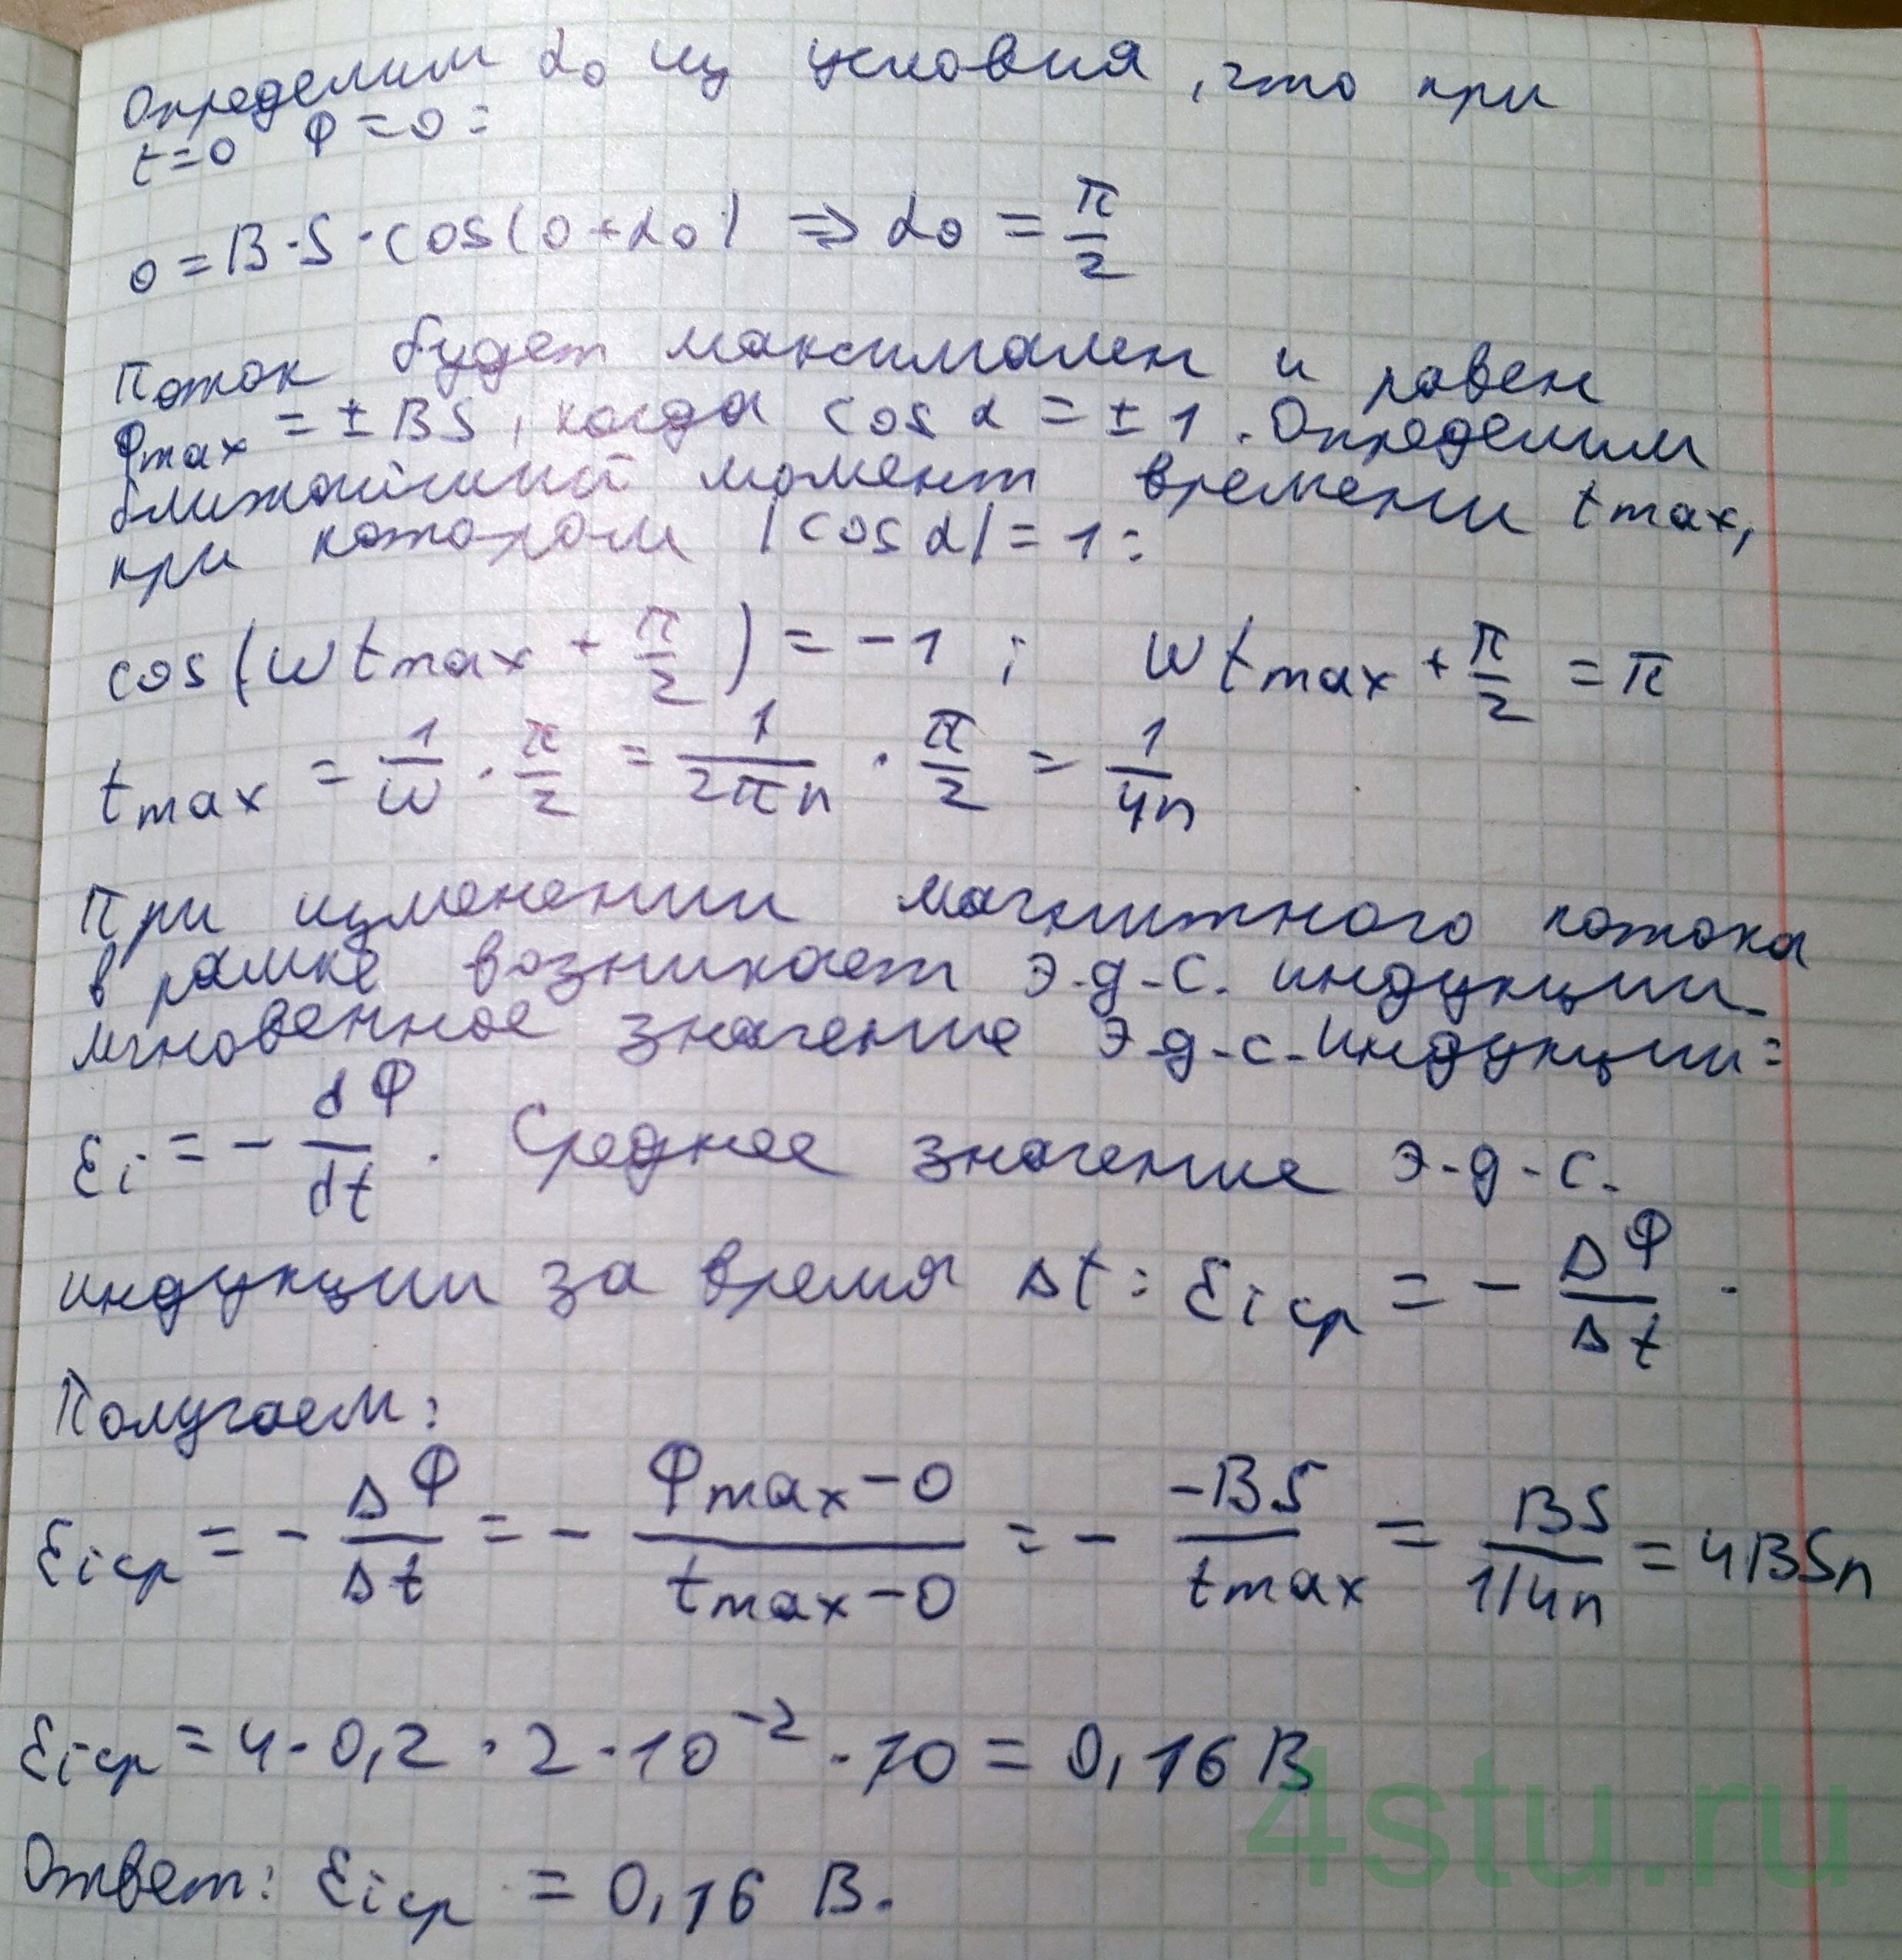 Определим α₀ из условия, что при
t=0 Φ=0:
0=B·S·cos(0+α₀) ⇒ α₀ = π/2
Поток будет максимален и равен
Φmax = ± BS, когда cos α = ± 1. Определим
ближайший момент времени tmax,
при котором |cos α| = 1:
cos(ωtmax + π/2) = -1 ; ωtmax + π/2 = π
tmax = 1/ω · π/2 = 1/2πn · π/2 = 1/4n
При изменении магнитного потока
в рамке возникает э.д.с. индукции.
Мгновенное значение э.д.с. индукции:
εi = - dΦ/dt . Среднее значение э.д.с.
индукции за время Δt: εi ср = - ΔΦ/Δt .
Получаем:
εi ср = - ΔΦ/Δt = - Φmax-0/tmax-0 = - -BS/tmax = BS/1/4n = 4BSn
εi ср = 4·0,2·2·10⁻²·10 = 0,16 В
Ответ: εi ср = 0,16 В.
4stu.ru